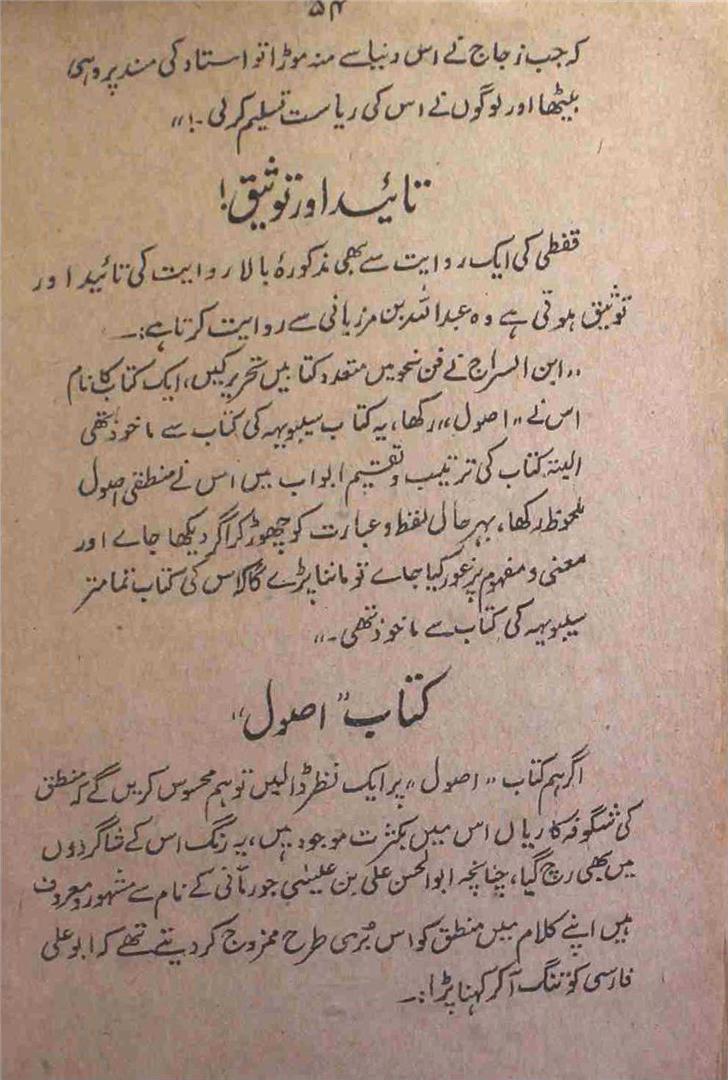 ۵۴
کہ جب زجاج نے اس دنیا سے منہ موڑا تو استاد کی مسند پر وہی
بیٹھا اور لوگوں نے اس کی ریاست تسلیم کر لی۔!"
تائید اور توثیق!
قفطی کی ایک روایت سے بھی مذکورۂ بالا روایت کی تائید اور
توثیق ہوتی ہے وہ عبداللہ بن مرزبانی سے روایت کرتا ہے:۔
"ابن السراج نے فن نحو میں متعدد کتابیں تحریر کیں، ایک کتاب کا نام
اس نے "اصول" رکھا، یہ کتاب سیبویہ کی کتاب سے ماخوذ تھی
البتہ کتاب کی ترتیب و تقسیم ابواب میں اس نے منطقی اصول
ملحوظ رکھا، بہر حال لفظ و عبارت کو چھوڑ کر اگر دیکھا جاے اور
معنی و مفہوم پر غور کیا جاے تو ماننا پڑے گا کہ اس کی کتاب تمامتر
سیبویہ کی کتاب سے ماخوذ تھی۔"
کتاب "اصول"
اگر ہم کتاب "اصول" پر ایک نظر ڈالیں تو ہم محسوس کریں گے کہ منطق
کی شگوفہ کاریاں اس میں بکثرت موجود ہیں، یہ رنگ اس کے شاگردوں
میں بھی رچ گیا، چنانچہ ابوالحسن علی بن عیسٰی جو رمّانی کے نام سے مشہور و معروف
ہیں اپنے کلام میں منطق کو اس بُری طرح ممزوج کر دیتے تھے کہ ابو علی
فارسی کو تنگ آ کر کہنا پڑا:۔